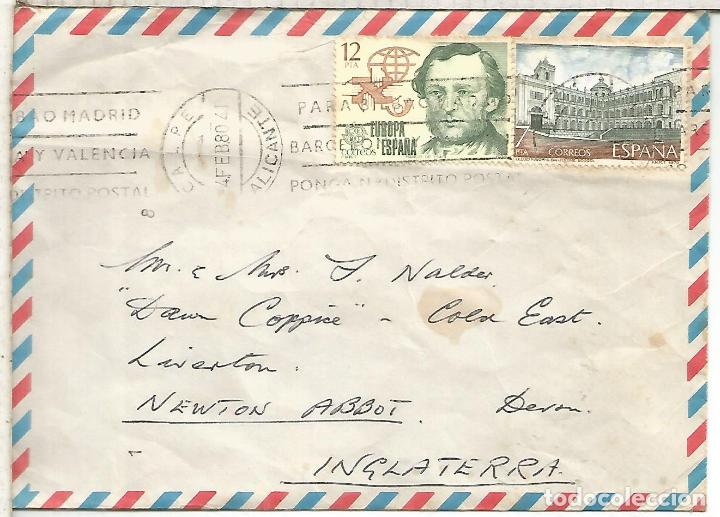 12
PTA
EUROPA
ESPAÑA
CORREOS ESPAÑA
BAO MADRID
A Y VALENCIA
DISTRITO POSTAL
CALPE
4 FEB 80
ALICANTE
PARA BILBAO
BARCELO
PONGA Nº DISTRITO POSTAL
8
Mr. & Mrs. J. Nalder.
"Dawn Coppice" - Cold East.
Liverton.
NEWTON ABBOT. Devon.
INGLATERRA.
1
todocoleccion
todocoleccion.net